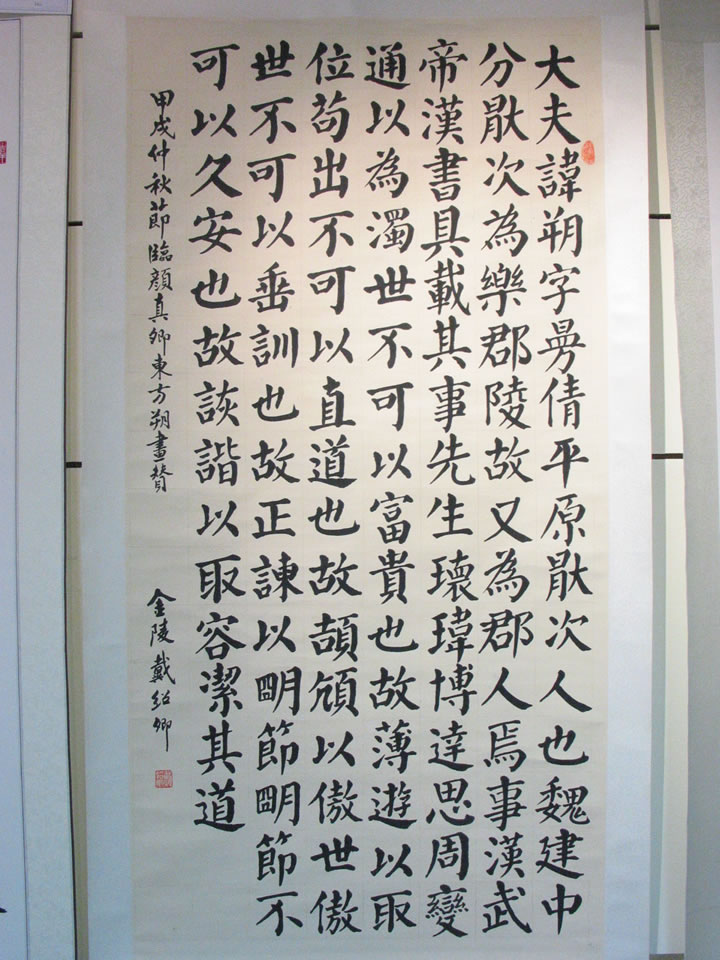 大夫諱朔字曼倩平原猒次人也魏建中
分猒次為樂郡陵故又為郡人焉事漢武
帝漢書具載其事先生瓌瑋博達思周變
通以為濁世不可以富貴也故薄遊以取
位苟出不可以直道也故頡頏以傲世傲
世不可以垂訓也故正諫以明節明節不
可以久安也故詼諧以取容潔其道
甲戌仲秋節臨顏真卿東方朔畫贊
金陵戴紹卿